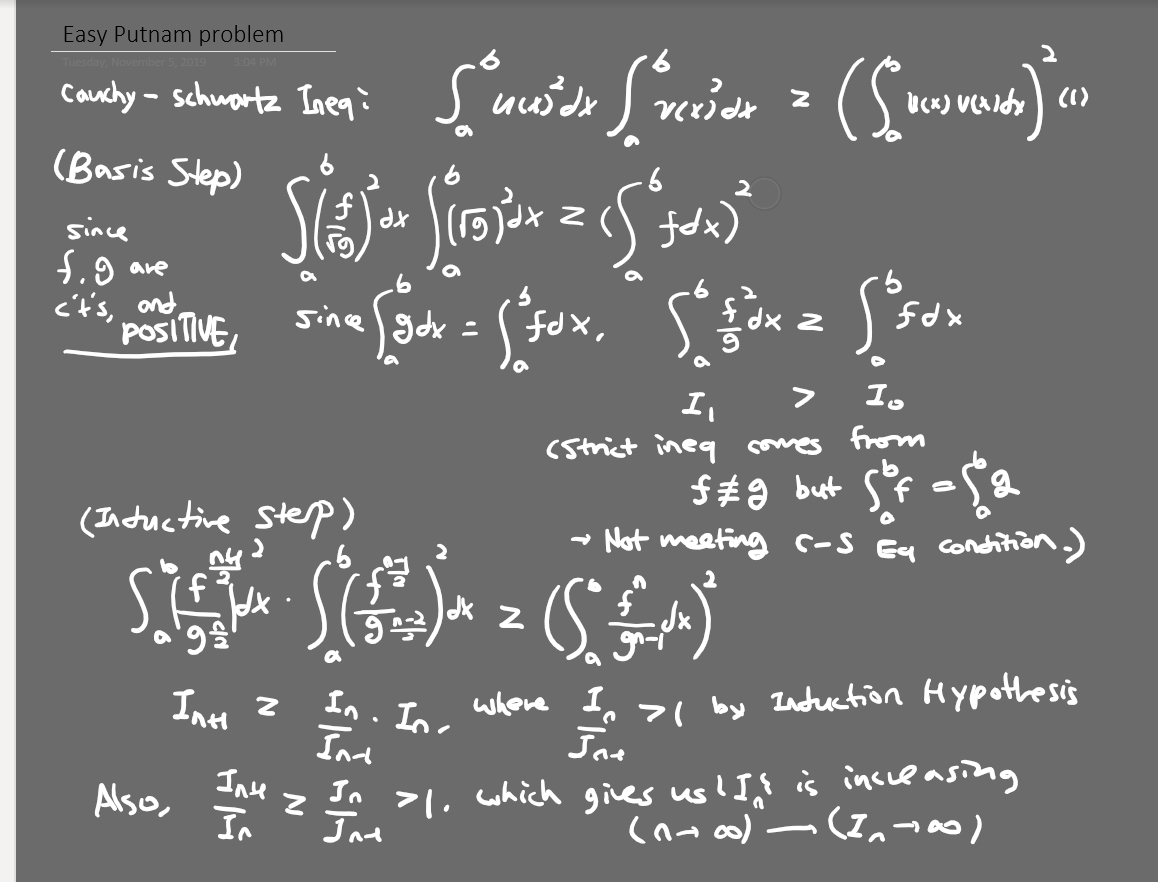 Easy Putnam problem
Tuesday, November 5, 2019 3:04 PM
Cauchy-Schwartz Ineq: ∫_a^b u(x)² dx ∫_a^b v(x)² dx ≥ (∫_a^b u(x) v(x) dx)² (1)
(Basis Step) ∫_a^b (f/√g)² dx ∫_a^b (√g)² dx ≥ (∫_a^b f dx)²
since
f, g are
c't's, and
POSITIVE,
since ∫_a^b g dx = ∫_a^b f dx, ∫_a^b f²/g dx ≥ ∫_a^b f dx
I₁ > I₀
(Strict ineq comes from
f ≢ g but ∫_a^b f = ∫_a^b g
→ Not meeting C-S Eq condition.)
(Inductive Step)
∫_a^b (f^((n+1)/2) / g^(n/2))² dx · ∫_a^b (f^((n-1)/2) / g^((n-2)/2))² dx ≥ (∫_a^b f^n / g^(n-1) dx)²
I_{n+1} ≥ I_n / I_{n-1} · I_n, where I_n / I_{n-1} > 1 by Induction Hypothesis
Also, I_{n+1} / I_n ≥ I_n / I_{n-1} > 1. which gives us {I_n} is increasing
(n → ∞) — (I_n → ∞)